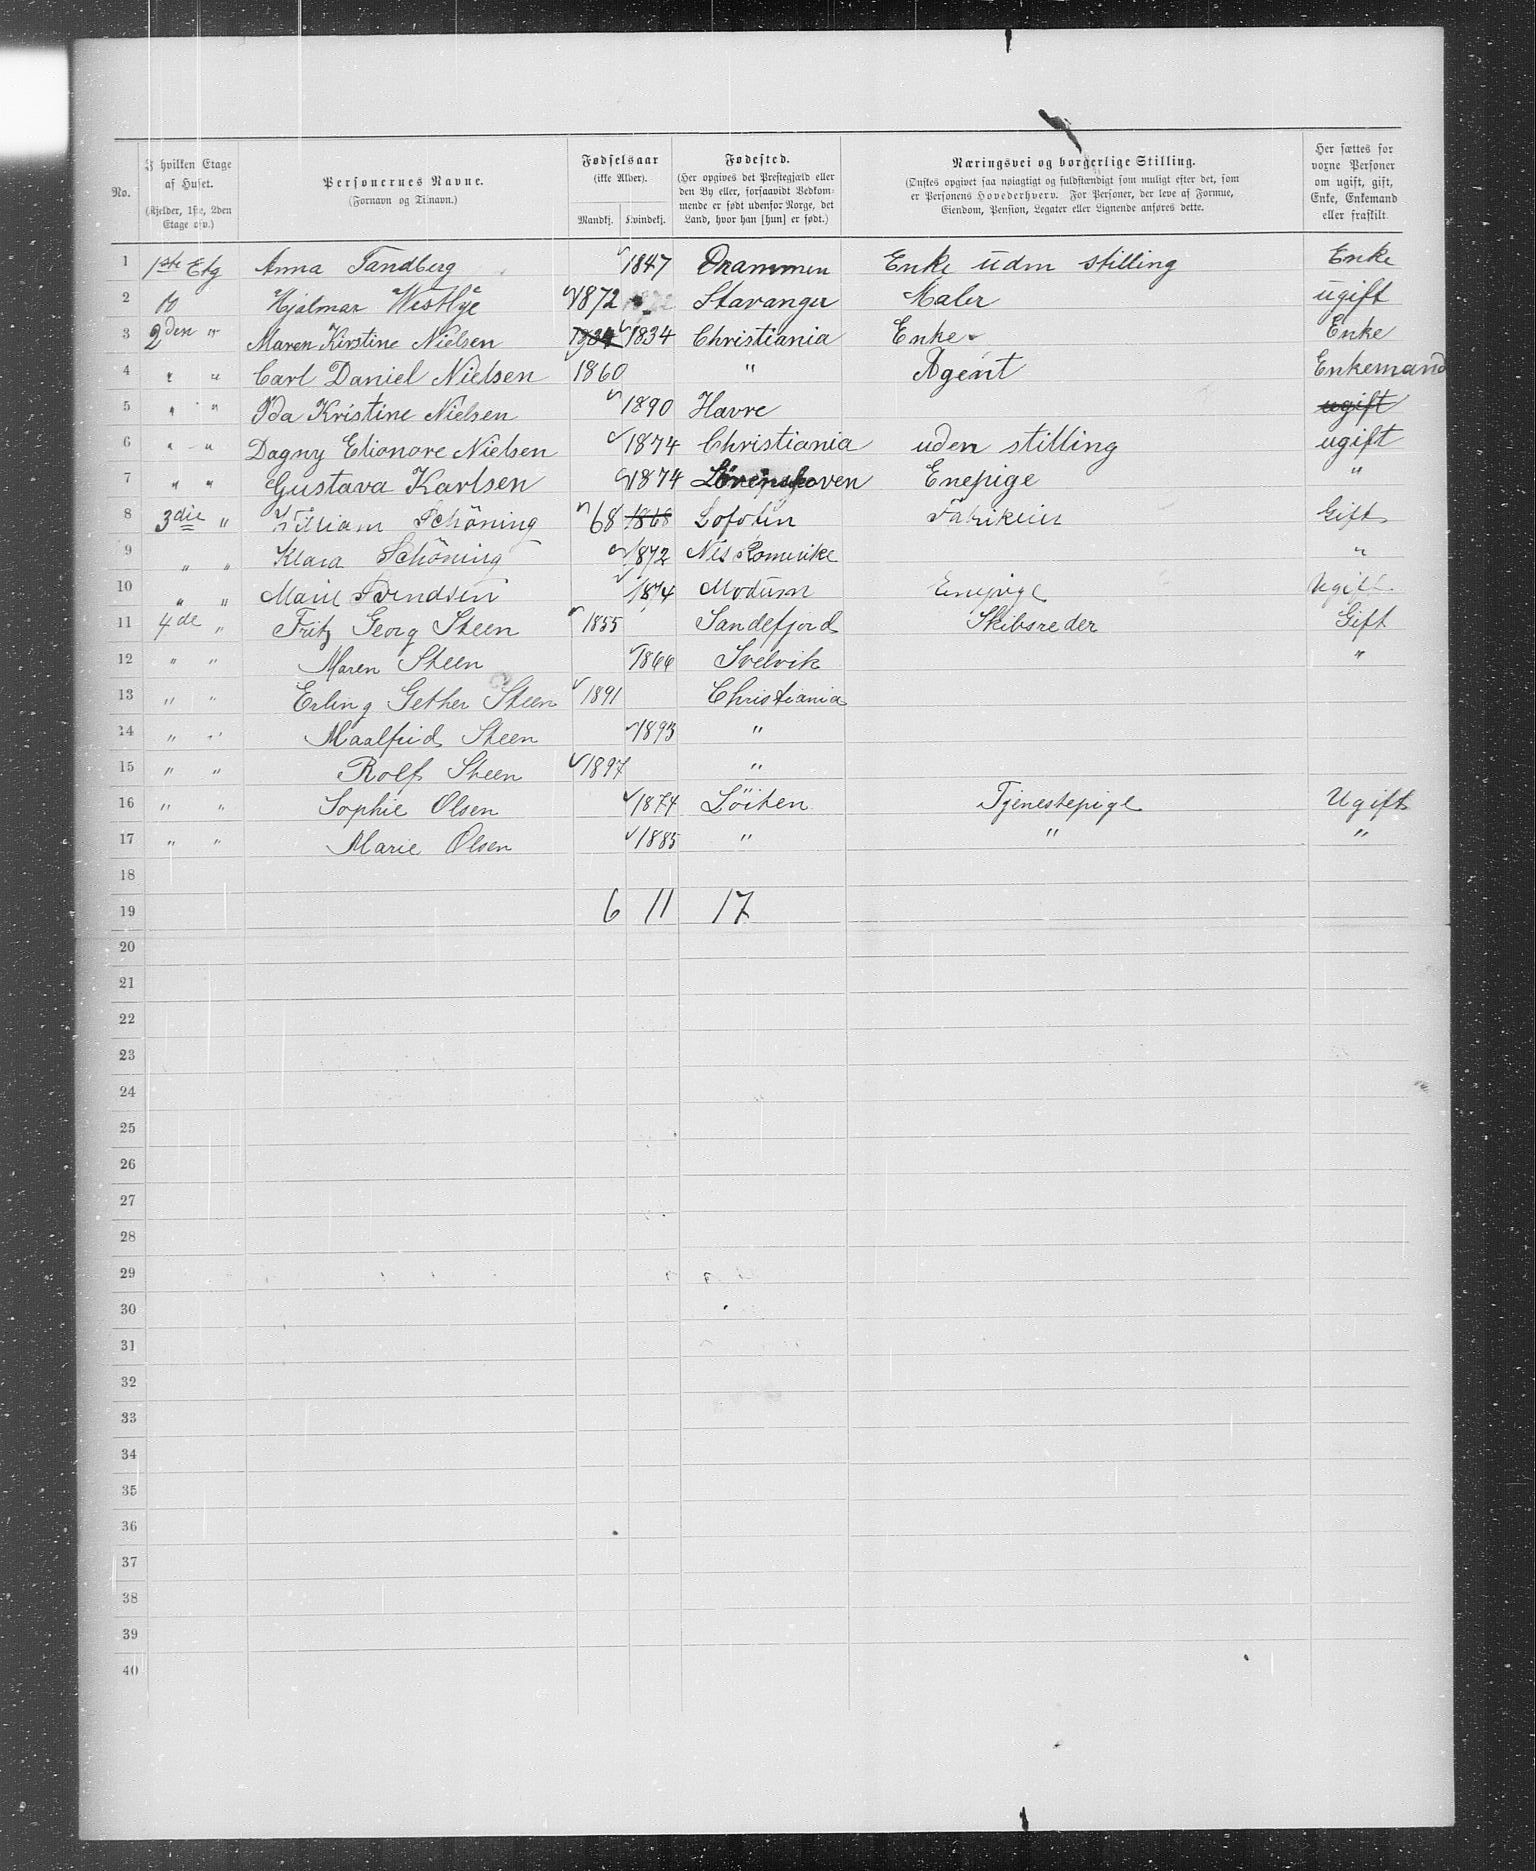 No.
I hvilken Etage af Huset. (Kjelder, 1ste, 2den Etage osv.)
Personernes Navne. (Fornavn og Tilnavn.)
Fødselsaar (ikke Alder). Mandkj. Kvindekj.
Fødested. (Her opgives det Prestegjæld eller den By eller, forsaavidt Vedkommende er født udenfor Norge, det Land, hvor han [hun] er født.)
Næringsvei og borgerlige Stilling. (Ønskes opgivet saa nøiagtigt og fuldstændigt som muligt efter det, som er Personens Hovederhverv. For Personer, der leve af Formue, Eiendom, Pension, Legater eller Lignende anføres dette.
Her sættes for voxne Personer om ugift, gift, Enke, Enkemand eller fraskilt.
1 1ste Etg Anna Tandberg 1847 Drammen Enke uden stilling Enke
2 " Hjalmar Westbye 1872 1872 Stavanger Maler ugift
3 2den " Maren Kirstine Nielsen 1834 1834 Christiania Enke Enke
4 " " Carl Daniel Nielsen 1860 " Agent Enkemand
5 " " Ida Kristine Nielsen 1890 Havre ugift
6 " " Dagny Elionore Nielsen 1874 Christiania uden stilling ugift
7 " " Gustava Karlsen 1874 Lörenskoven Enepige "
8 3die " William Schöning 68 1868 Lofoten Fabrikeier Gift
9 " " Klara Schöning 1872 Nes Romerike "
10 " " Marie Svendsen 1874 Modum Enepige Ugift
11 4de " Fritz Georg Steen 1855 Sandefjord Skibsreder Gift
12 " " Maren Steen 1866 Svelvik "
13 " " Erling Gether Steen 1891 Christiania
14 " " Maalfrid Steen 1893 "
15 " " Rolf Steen 1897 "
16 " " Sophie Olsen 1874 Löiten Tjenestepige Ugift
17 " " Marie Olsen 1885 " " "
18
19 6 11 17
20
21
22
23
24
25
26
27
28
29
30
31
32
33
34
35
36
37
38
39
40